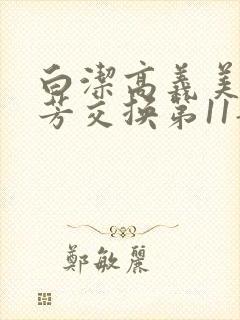 白潔高義美
芳交换第11
鄭敏麗